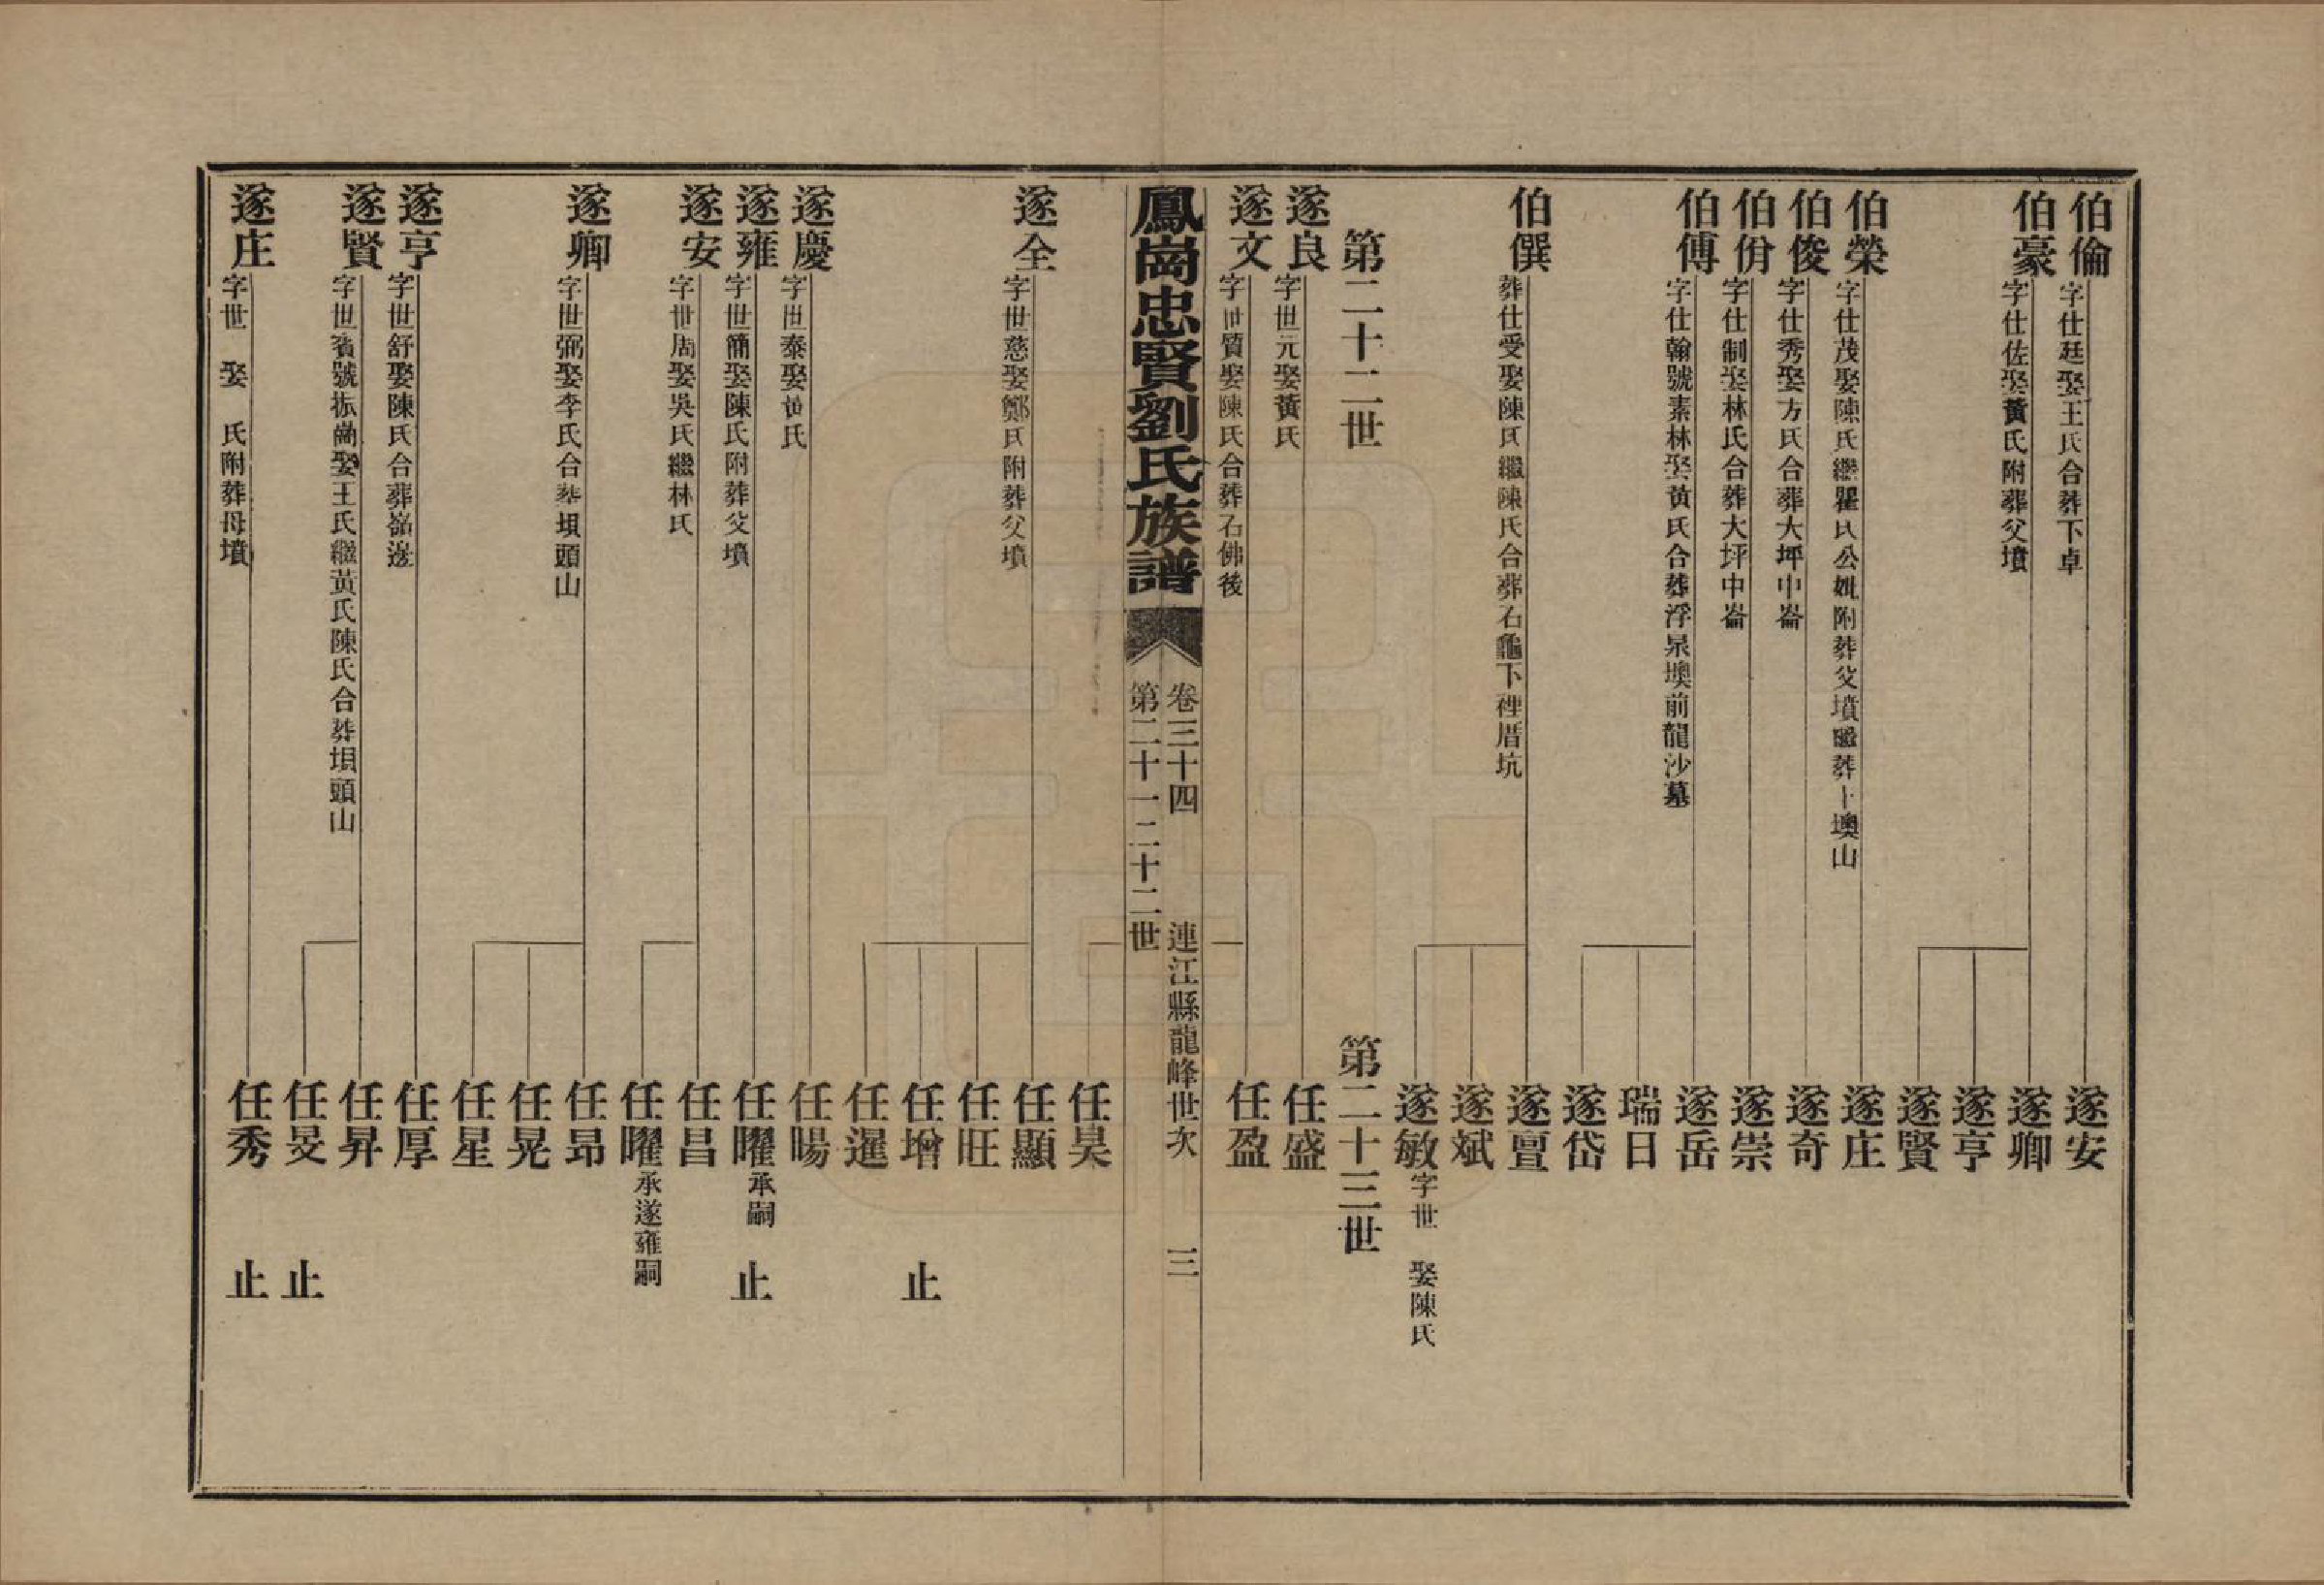 伯倫 字仕廷娶王氏合葬下卓 遂安
伯豪 字仕佐娶黃氏附葬父墳 遂卿
遂亨
遂賢
伯榮 字仕茂娶陳氏繼瞿氏公妣附葬父墳繼葬上墺山 遂庄
伯俊 字仕秀娶方氏合葬大坪中崙 遂奇
伯佾 字仕制娶林氏合葬大坪中崙 遂崇
伯傅 字仕翰號素林娶黃氏合葬浮泉墺前龍沙墓 遂岳
瑞日
遂岱
伯僎 葬仕受娶陳氏繼陳氏合葬石龜下裡厝坑 遂亶
遂斌
遂敏 字世 娶陳氏
第二十二世 第二十三世
遂良 字世元娶黃氏 任盛
遂文 字世質娶陳氏合葬石佛後 任盈
鳳崗忠賢劉氏族譜
卷三十四 連江縣龍峰世次 三
第二十一二十二世
任昊
遂全 字世慈娶鄭氏附葬父墳 任顯
任旺
任增 止
任暹
遂慶 字世泰娶黃氏 任暘
遂雍 字世簡娶陳氏附葬父墳 任曜承嗣 止
遂安 字世周娶吳氏繼林氏 任昌
任曜承遂雍嗣
遂卿 字世弼娶李氏合葬垻頭山 任昂
任晃
任星
遂亨 字世舒娶陳氏合葬嵛邊 任厚
遂賢 字世賓號振崗娶王氏繼黃氏陳氏合葬垻頭山 任昇
任旻 止
遂庄 字世 娶 氏附葬母墳 任秀 止